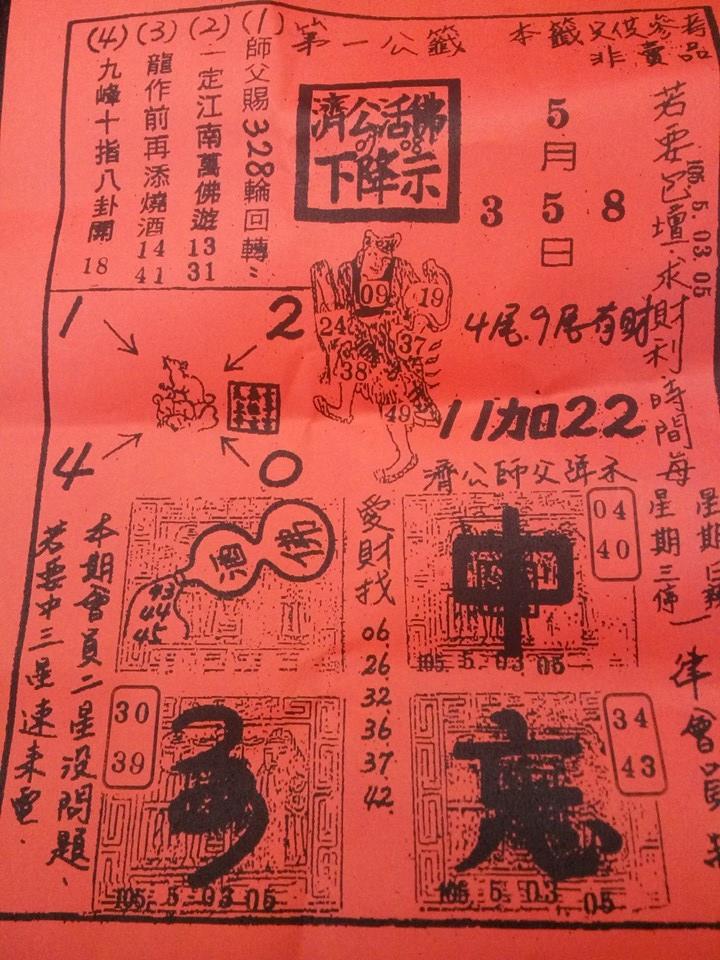 第一公籤
本籤只供參考
非賣品
(1)師父賜328輪回轉
(2)一定江南萬佛遊 13 31
(3)龍作前再添燒酒 14 41
(4)九峰十指八卦開 18
濟公活佛
07 08
下降示
5
月
3 5 8
日
105.5.03 05
若要包壇求財利時間每
星期三停
律會
09
19
24
37
38
49
4尾.9尾有財
11加22
濟公師父降示
1
2
4
0
佛
酒
43
44
45
愛財找
06
26
32
36
37
42
中
04
40
105.5.03 05
30
39
105.5.03 05
34
43
105.5.03 05
本期會員二星没問題.
若要中三星速來電.